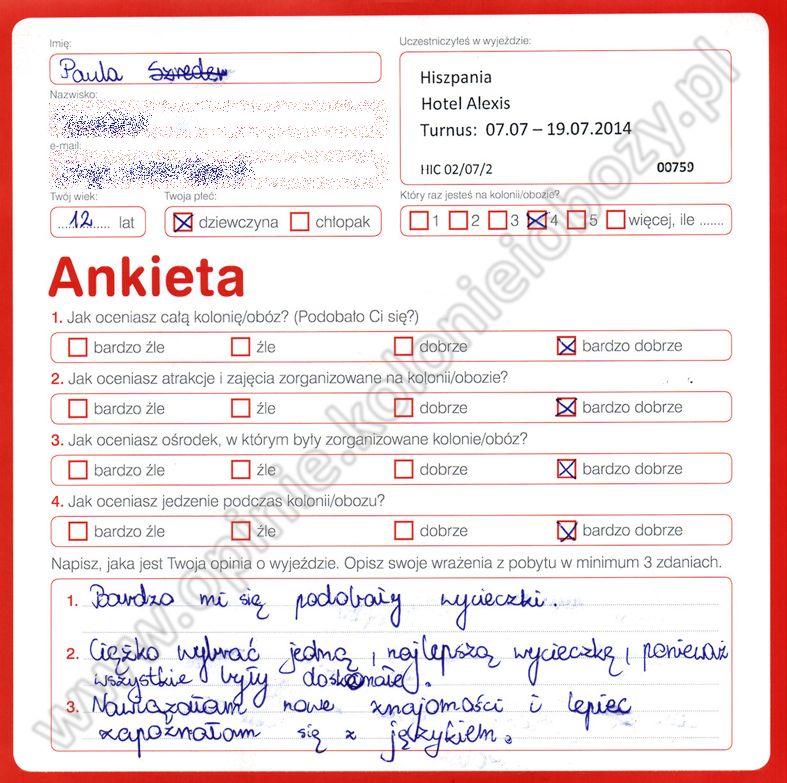 Imię:
Paula Szreder
Nazwisko:
e-mail:
Twój wiek:
12 lat
Twoja płeć:
dziewczyna chłopak
Uczestniczyłeś w wyjeździe:
Hiszpania
Hotel Alexis
Turnus: 07.07 – 19.07.2014
HIC 02/07/2 00759
Który raz jesteś na kolonii/obozie?
1 2 3 4 5 więcej, ile .......
Ankieta
1. Jak oceniasz całą kolonię/obóz? (Podobało Ci się?)
bardzo źle źle dobrze bardzo dobrze
2. Jak oceniasz atrakcje i zajęcia zorganizowane na kolonii/obozie?
bardzo źle źle dobrze bardzo dobrze
3. Jak oceniasz ośrodek, w którym były zorganizowane kolonie/obóz?
bardzo źle źle dobrze bardzo dobrze
4. Jak oceniasz jedzenie podczas kolonii/obozu?
bardzo źle źle dobrze bardzo dobrze
Napisz, jaka jest Twoja opinia o wyjeździe. Opisz swoje wrażenia z pobytu w minimum 3 zdaniach.
1. Bardzo mi się podobały wycieczki.
2. Ciężko wybrać jedną, najlepszą wycieczkę, ponieważ
wszystkie były doskonałe.
3. Nawiązałam nowe znajomości i lepiec
zapoźnałam się z językiem.
www.opinie.kolonieiobozy.pl